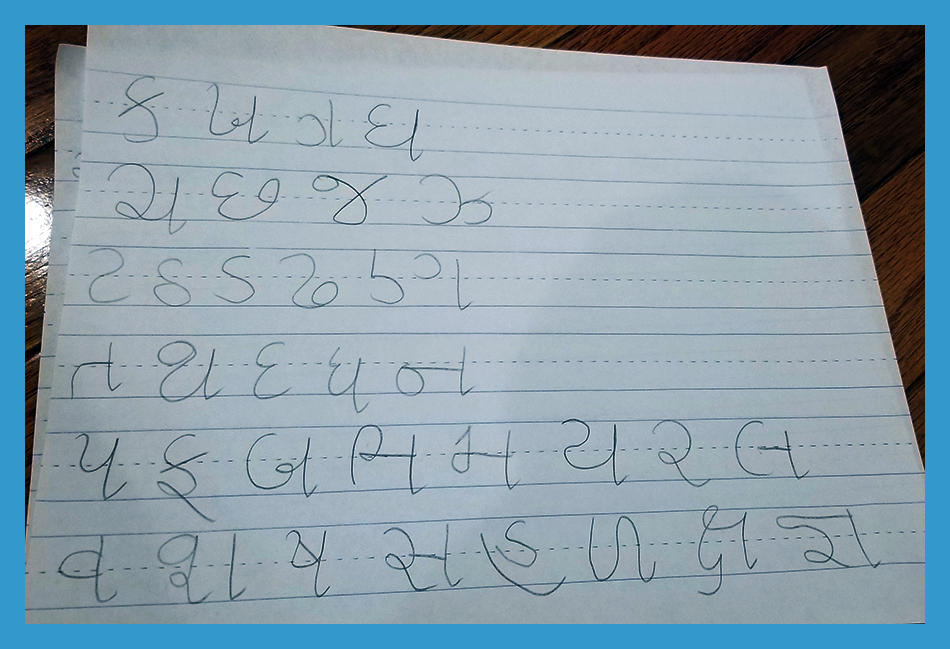 ક ખ ગ ઘ
ચ છ જ ઝ
ટ ઠ ડ ઢ ણ
ત થ દ ધ ન
પ ફ બ ભ મ ય ર લ
વ શ ષ સ હ ળ ક્ષ જ્ઞ